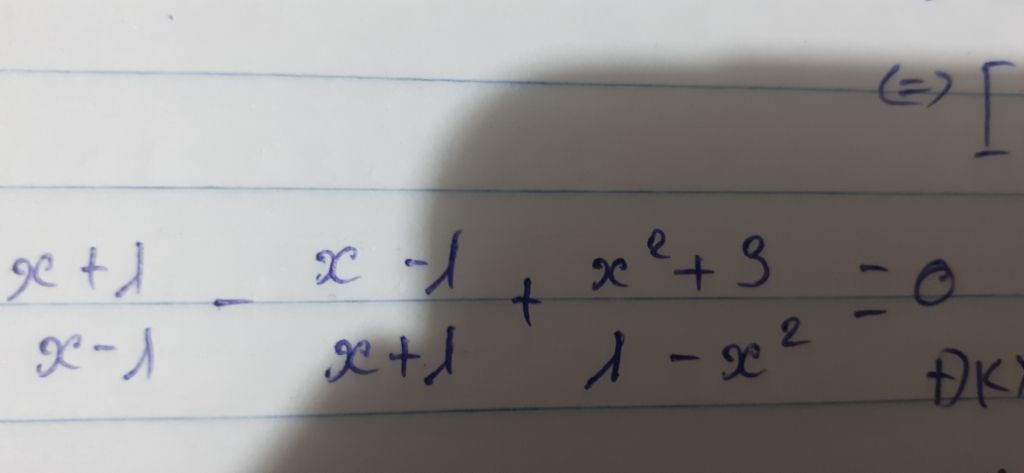 (=) [
x+1 / x-1 - x-1 / x+1 + x² + 3 / 1 - x² = 0
ĐK